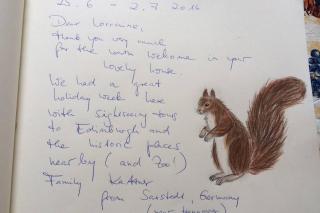 25.6 - 2.7.2016
Dear Lorraine,
thank you very much
for the warm welcome in your
lovely house.
We had a great
holiday week here
with sightseeing tours
to Edinburgh and
the historic places
nearby (and Zoo!)
Family
from Sarstedt, Germany
(near Hannover)